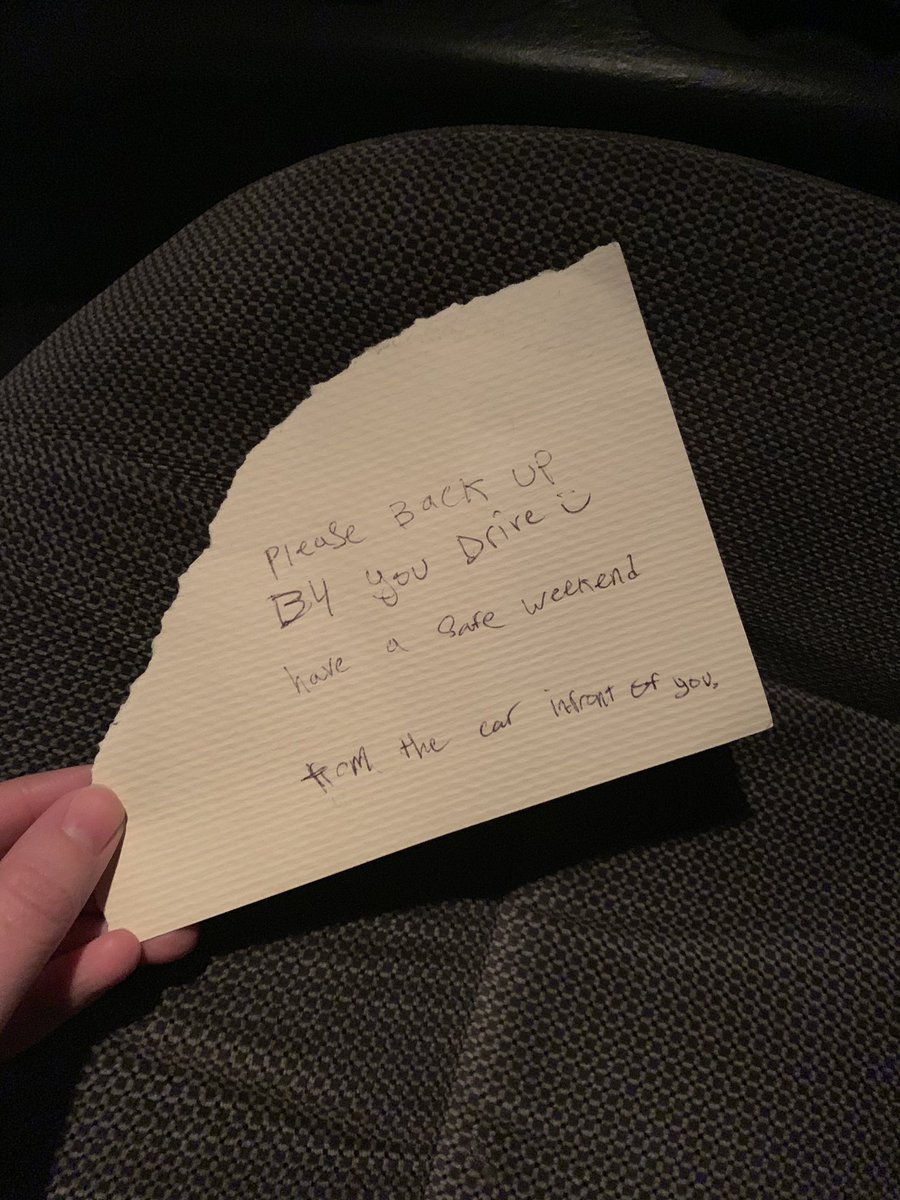 Please Back up
B4 you Drive :)
have a safe weekend
from the car infront of you.